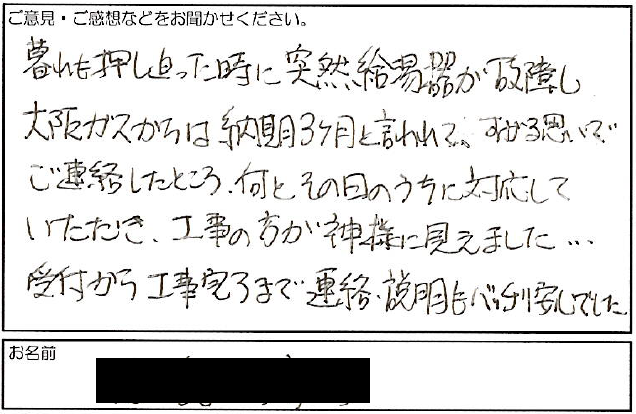 ご意見・ご感想などをお聞かせください。
暮れも押し迫った時に突然給湯器が故障し
大阪ガスからは納期3ヶ月と言われて、すがる思いで
ご連絡したところ、何とその日のうちに対応して
いただき、工事の方が神様に見えました…
受付から工事完了まで連絡・説明もバッチリ安心でした。
お名前